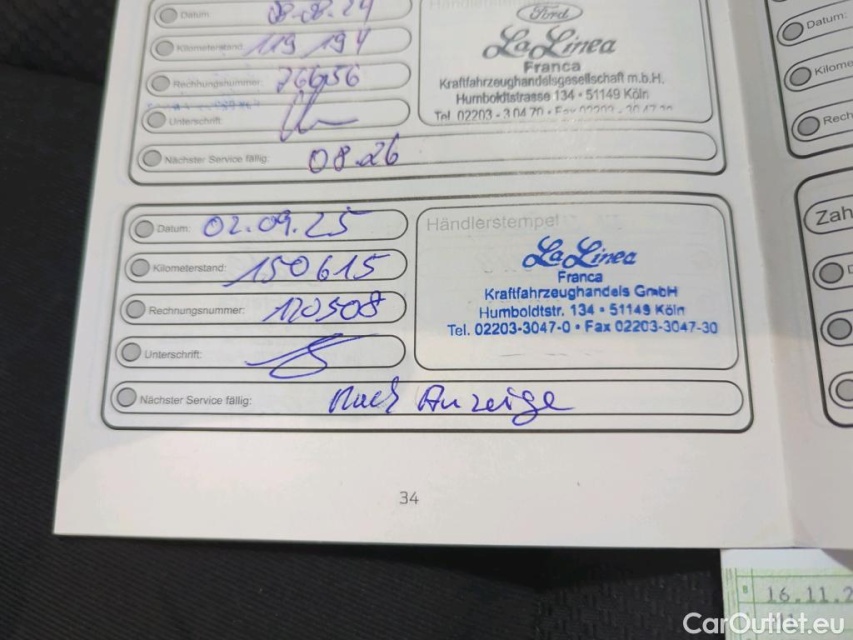 Datum: 08.08.24
Kilometerstand: 119 194
Rechnungsnummer: 76656
Unterschrift:
Nächster Service fällig: 08.26
Händlerstempel
Ford
La Linea
Franca
Kraftfahrzeughandelsgesellschaft m.b.H.
Humboldtstrasse 134 • 51149 Köln
Tel. 02203 - 3 04 70 • Fax 02203 - 30 47 30
Datum: 02.09.25
Kilometerstand: 150615
Rechnungsnummer: 120508
Unterschrift:
Nächster Service fällig: Nach Anzeige
Händlerstempel
La Linea
Franca
Kraftfahrzeughandels GmbH
Humboldtstr. 134 • 51149 Köln
Tel. 02203-3047-0 • Fax 02203-3047-30
34
Datum:
Kilome
Rech
Zah
16.11.2
CarOutlet.eu